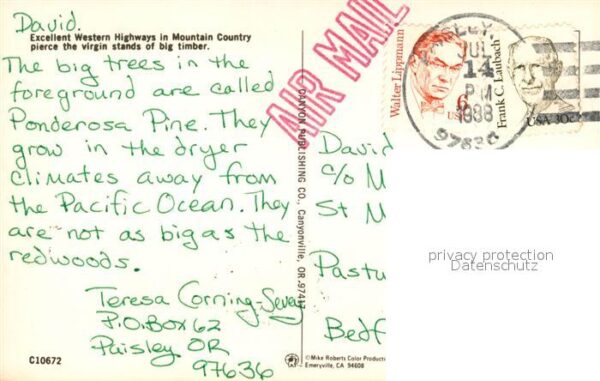 David.
Excellent Western Highways in Mountain Country
pierce the virgin stands of big timber.
The big trees in the
foreground are called
Ponderosa Pine. They
grow in the dryer
climates away from
the Pacific Ocean. They
are not as big as the
redwoods.
Teresa Corning-Sevey
P.O. Box 62
Paisley OR
97636
C10672
CANYON PUBLISHING CO., Canyonville, OR. 97417
AIR MAIL
Walter Lippmann
6
USA
JUL
14
PM
1988
97636
Frank C. Laubach
USA 30c
David
c/o M
St M
Pastu
Bedf
privacy protection
Datenschutz
©Mike Roberts Color Productio
Emeryville, CA 94608